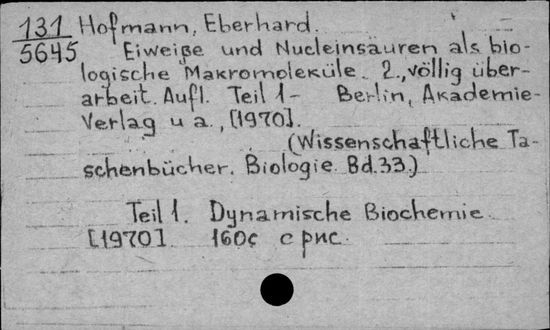 131 Hofmann, Eberhard.
5645 Eiweiße und Nucleinsäuren als bio-
logische Makromoleküle. 2., völlig über-
arbeit. Aufl. Teil 1- Berlin, Akademie-
Verlag u a., [1970].
(Wissenschaftliche Ta-
schenbücher. Biologie. Bd.33.)
Teil 1. Dynamische Biochemie.
[1970] 160с с рис.